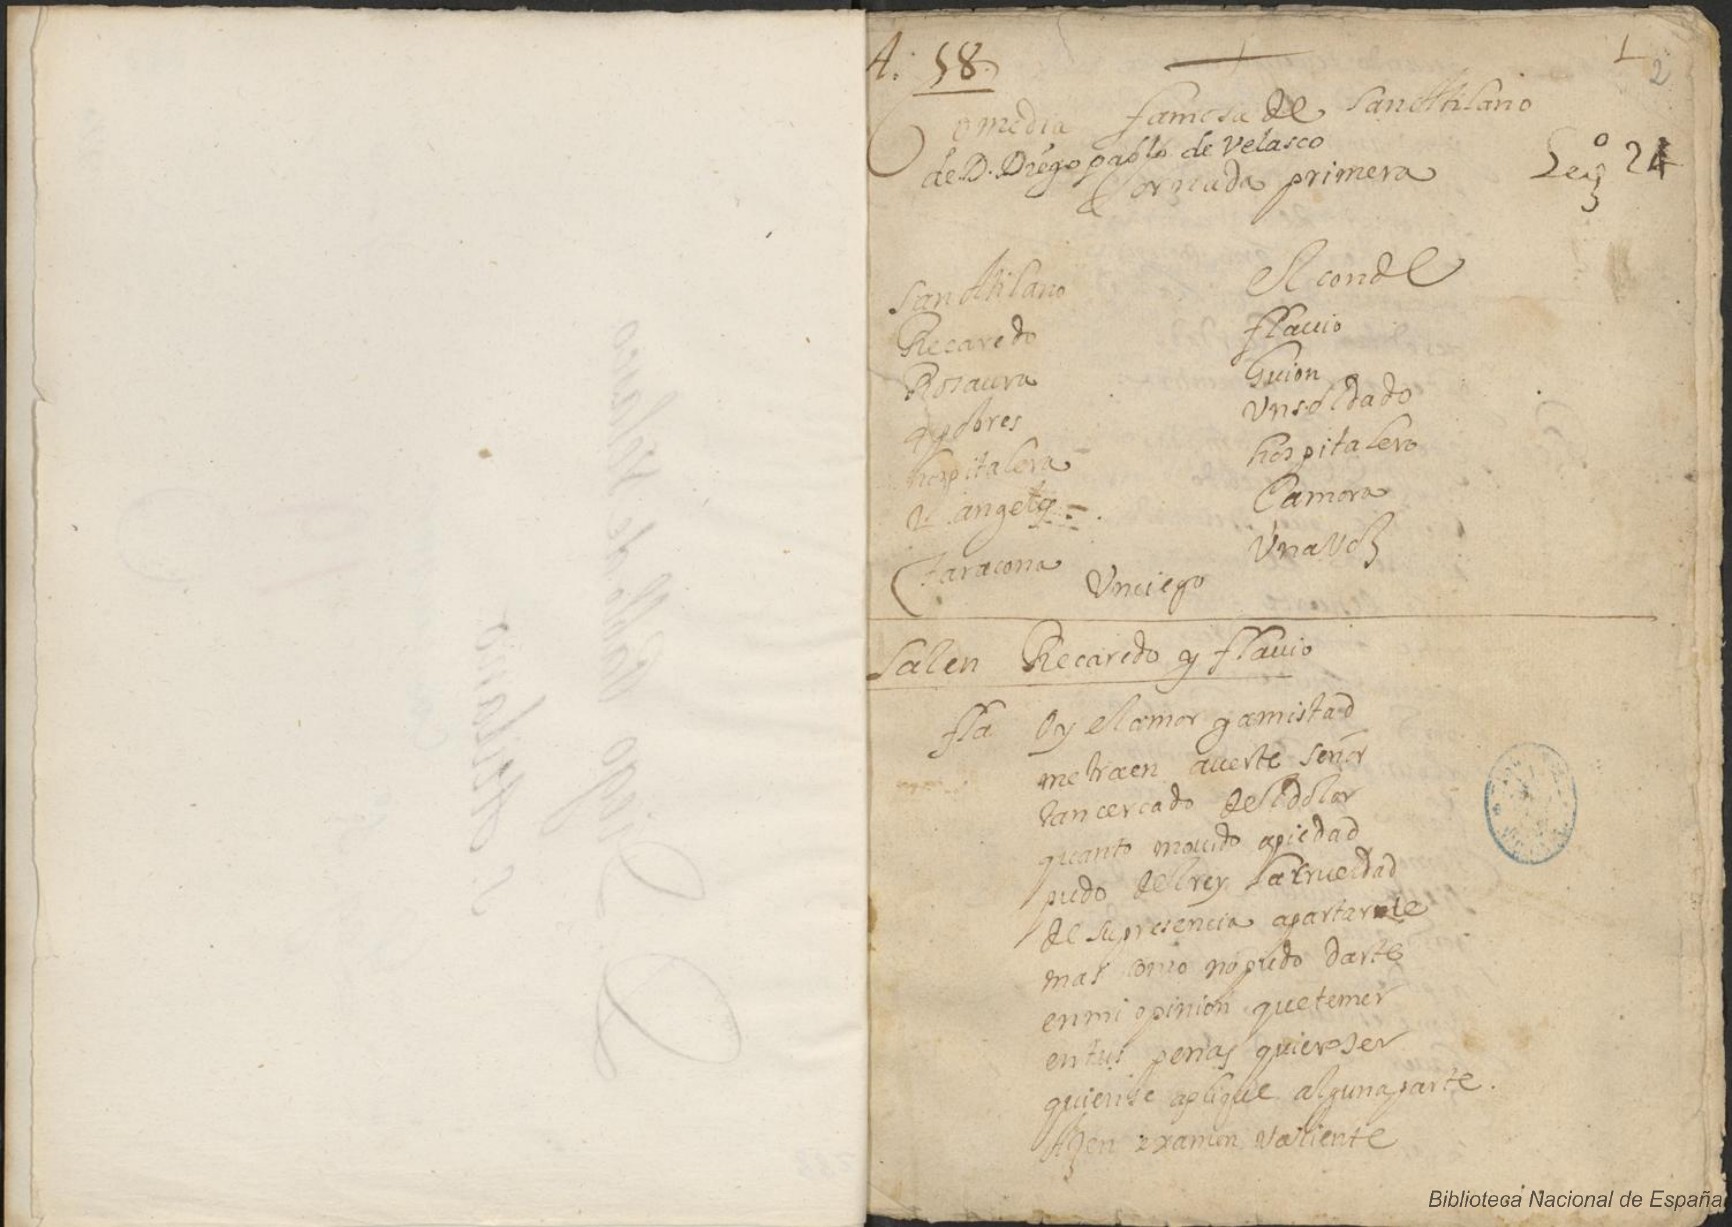 A. 58.
1
2
Comedia famosa de Sancthilario
de D. Diego pablo de Velasco
Jornada primera
Lego 24
Sancthilario
El conde
Recaredo
flauio
Rosaura
Guion
Un soldado
hospitalera
hospitalero
angel
Camora
Taracona
Una voz
Un ciego
Salen Recaredo y flauio
fla Oy el amor y amistad
me traen auerte señor
tan cercado del dolor
quanto mouido apiedad
pudo del rey la crueldad
de su presencia apartarte
mas como no pudo darte
en mi opinion que temer
en tus penas quiero ser
quien se aplique alguna parte.
examen valiente
D. Diego Pablo de Velasco
S. Hilario
Biblioteca Nacional de España